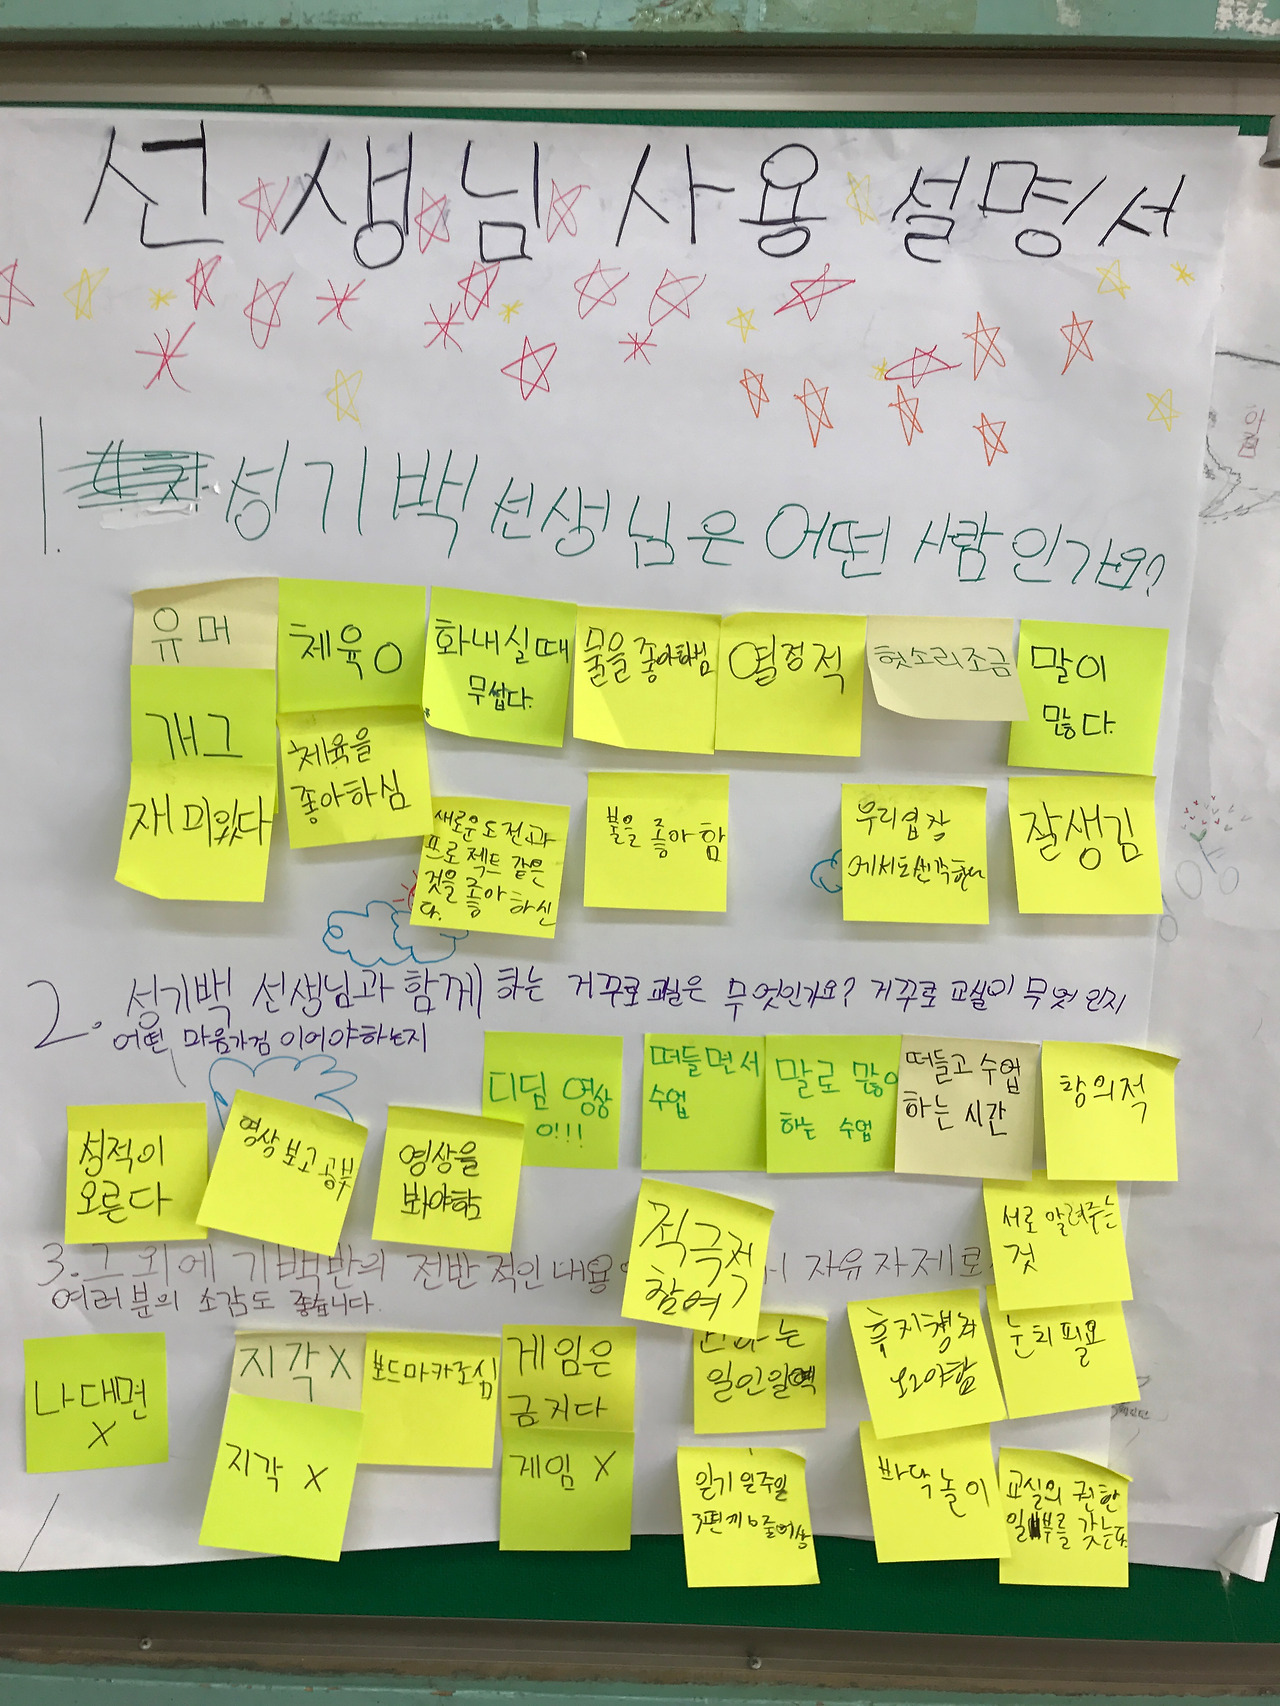 선생님 사용 설명서
1. 성기백 선생님은 어떤 사람인가요?
유머
개그
재미있다
체육 O
체육을
좋아하심
화내실때
무섭다.
새로운 도전과
프로젝트 같은
것을 좋아하신
다.
물을 좋아하심
불을 좋아함
열정적
헛소리조금
우리 입장
에서도 생각한다
말이
많다.
잘생김
2. 성기백 선생님과 함께 하는 거꾸로 교실은 무엇인가요? 거꾸로 교실이 무엇인지
어떤 마음가짐 이어야하는지
성적이
오른다
영상 보고 공부
영상을
봐야함
디딤 영상
이!!!
떠들면서
수업
말로 많이
하는 수업
떠들고 수업
하는 시간
창의적
적극적
참여
서로 알려주는
것
3. 그 외에 기백반의 전반적인 내용 자유자제로
여러분의 소감도 좋습니다.
나대면
X
지각 X
지각 X
보드마카조심
게임은
금지다
게임 X
일인일역
일기 일주일
3편 께 6줄이상
휴지챙겨
와야함
눈치필요
바닥놀이
교실의 권한
일부를 갖는다.